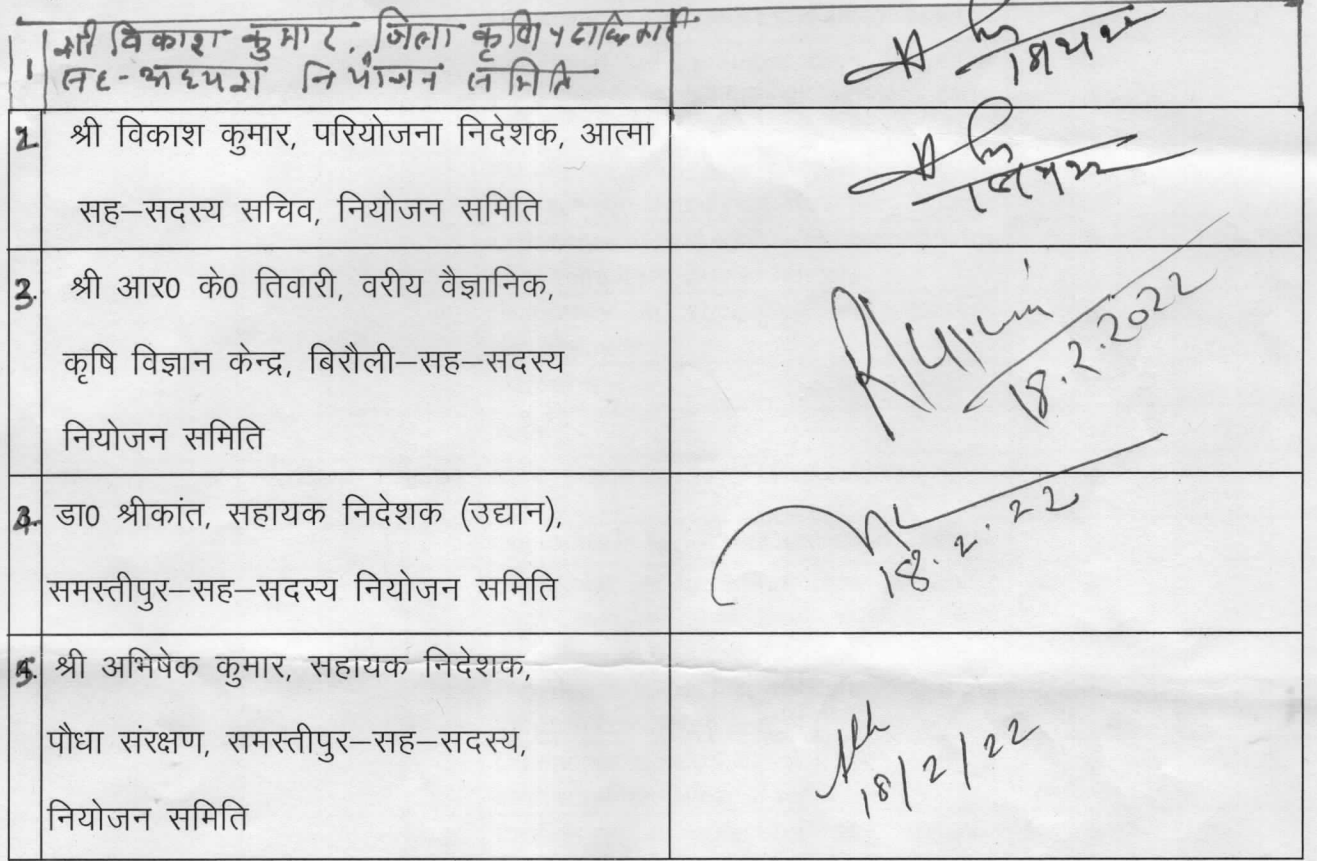 1 श्री विकाश कुमार, जिला कृषि पदाधिकारी
सह-अध्यक्ष नियोजन समिति
2 श्री विकाश कुमार, परियोजना निदेशक, आत्मा
सह–सदस्य सचिव, नियोजन समिति
3. श्री आर0 के0 तिवारी, वरीय वैज्ञानिक,
कृषि विज्ञान केन्द्र, बिरौली–सह–सदस्य
नियोजन समिति
18.2.2022
4. डा0 श्रीकांत, सहायक निदेशक (उद्यान),
समस्तीपुर–सह–सदस्य नियोजन समिति
18.2.22
5. श्री अभिषेक कुमार, सहायक निदेशक,
पौधा संरक्षण, समस्तीपुर–सह–सदस्य,
नियोजन समिति
18/2/22